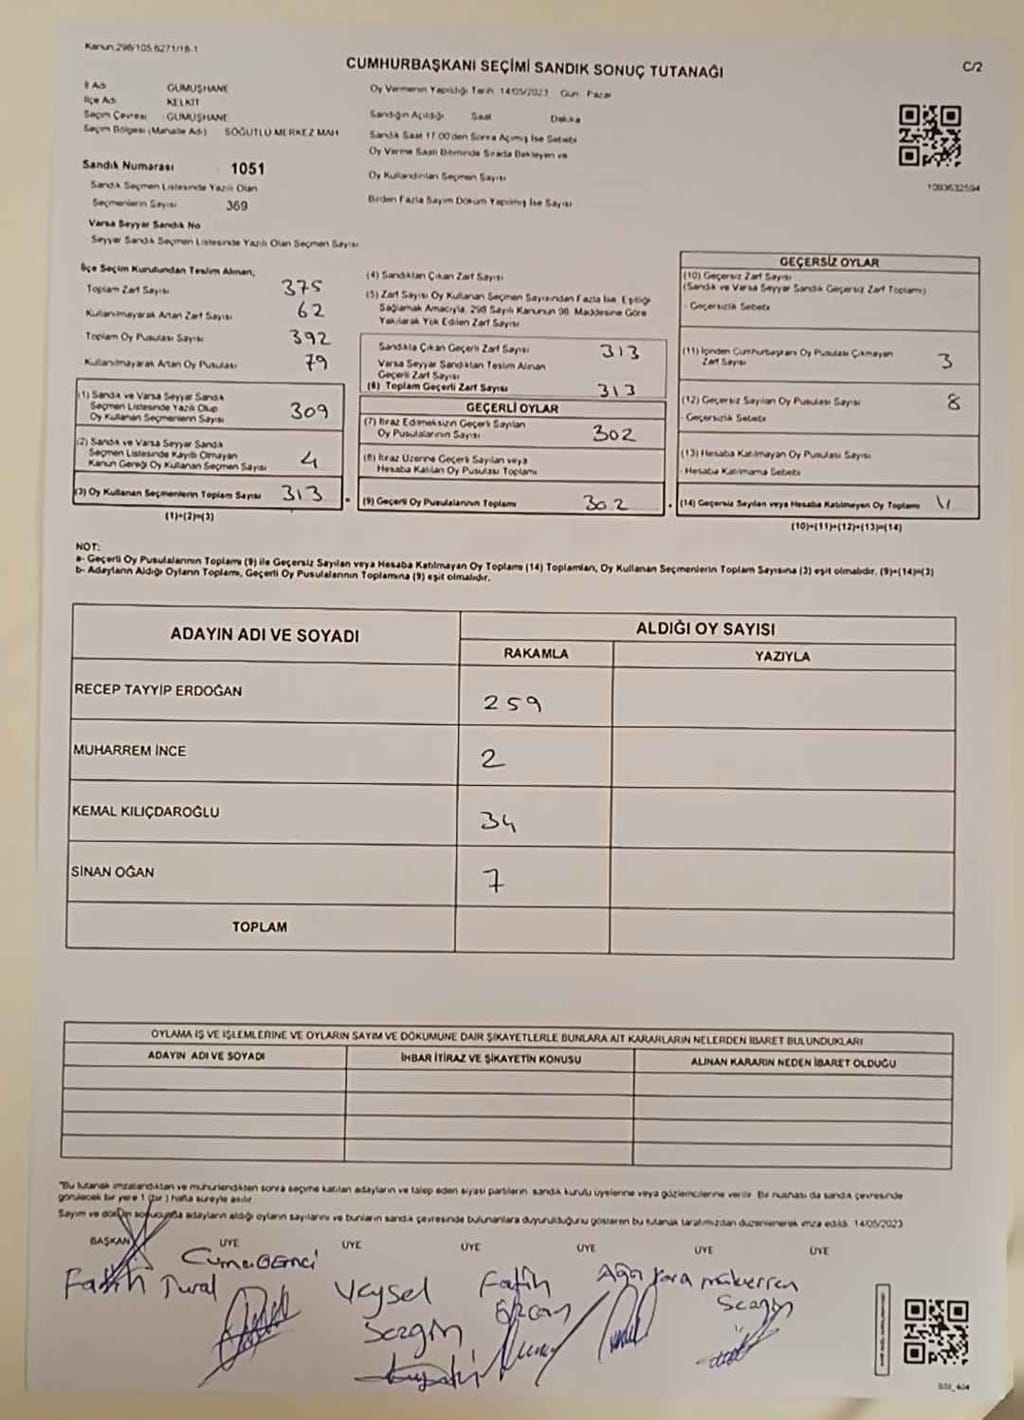 Kanun:298/105.6271/18-1
CUMHURBAŞKANI SEÇİMİ SANDIK SONUÇ TUTANAĞI
C/2
İl Adı GÜMÜŞHANE
İlçe Adı KELKİT
Seçim Çevresi GÜMÜŞHANE
Seçim Bölgesi (Mahalle Adı) SÖĞÜTLÜ MERKEZ MAH
Sandık Numarası 1051
Sandık Seçmen Listesinde Yazılı Olan
Seçmenlerin Sayısı 369
Varsa Seyyar Sandık No
Seyyar Sandık Seçmen Listesinde Yazılı Olan Seçmen Sayısı
Oy Vermenin Yapıldığı Tarih 14/05/2023 Gün Pazar
Sandığın Açıldığı Saat Dakika
Sandık Saat 17.00'den Sonra Açılmış İse Sebebi
Oy Verme Saati Bitiminde Sırada Bekleyen ve
Oy Kullandırılan Seçmen Sayısı
Birden Fazla Sayım Döküm Yapılmış İse Sayısı
1083632594
İlçe Seçim Kurulundan Teslim Alınan;
Toplam Zarf Sayısı 375
Kullanılmayarak Artan Zarf Sayısı 62
Toplam Oy Pusulası Sayısı 392
Kullanılmayarak Artan Oy Pusulası 79
(1) Sandık ve Varsa Seyyar Sandık
Seçmen Listesinde Yazılı Olup
Oy Kullanan Seçmenlerin Sayısı 309
(2) Sandık ve Varsa Seyyar Sandık
Seçmen Listesinde Kayıtlı Olmayan
Kanun Gereği Oy Kullanan Seçmen Sayısı 4
(3) Oy Kullanan Seçmenlerin Toplam Sayısı 313
(1)+(2)=(3)
(4) Sandıktan Çıkan Zarf Sayısı
(5) Zarf Sayısı Oy Kullanan Seçmen Sayısından Fazla İse, Eşitliği
Sağlamak Amacıyla, 298 Sayılı Kanunun 98. Maddesine Göre
Yakılarak Yok Edilen Zarf Sayısı
Sandıkta Çıkan Geçerli Zarf Sayısı 313
Varsa Seyyar Sandıktan Teslim Alınan
Geçerli Zarf Sayısı
(6) Toplam Geçerli Zarf Sayısı 313
GEÇERLİ OYLAR
(7) İtiraz Edilmeksizin Geçerli Sayılan
Oy Pusulalarının Sayısı 302
(8) İtiraz Üzerine Geçerli Sayılan veya
Hesaba Katılan Oy Pusulası Toplamı
(9) Geçerli Oy Pusulalarının Toplamı 302
GEÇERSİZ OYLAR
(10) Geçersiz Zarf Sayısı
(Sandık ve Varsa Seyyar Sandık Geçersiz Zarf Toplamı)
Geçersizlik Sebebi
(11) İçinden Cumhurbaşkanı Oy Pusulası Çıkmayan
Zarf Sayısı 3
(12) Geçersiz Sayılan Oy Pusulası Sayısı 8
Geçersizlik Sebebi
(13) Hesaba Katılmayan Oy Pusulası Sayısı
Hesaba Katılmama Sebebi
(14) Geçersiz Sayılan veya Hesaba Katılmayan Oy Toplamı 11
(10)+(11)+(12)+(13)=(14)
NOT:
a- Geçerli Oy Pusulalarının Toplamı (9) ile Geçersiz Sayılan veya Hesaba Katılmayan Oy Toplamı (14) Toplamları, Oy Kullanan Seçmenlerin Toplam Sayısına (3) eşit olmalıdır. (9)+(14)=(3)
b- Adayların Aldığı Oyların Toplamı, Geçerli Oy Pusulalarının Toplamına (9) eşit olmalıdır.
ADAYIN ADI VE SOYADI
ALDIĞI OY SAYISI
RAKAMLA YAZIYLA
RECEP TAYYİP ERDOĞAN 259
MUHARREM İNCE 2
KEMAL KILIÇDAROĞLU 34
SİNAN OĞAN 7
TOPLAM
OYLAMA İŞ VE İŞLEMLERİNE VE OYLARIN SAYIM VE DÖKÜMÜNE DAİR ŞİKAYETLERLE BUNLARA AİT KARARLARIN NELERDEN İBARET BULUNDUKLARI
ADAYIN ADI VE SOYADI İHBAR İTİRAZ VE ŞİKAYETİN KONUSU ALINAN KARARIN NEDEN İBARET OLDUĞU
"Bu tutanak imzalandıktan ve mühürlendikten sonra seçime katılan adayların ve talep eden siyasi partilerin sandık kurulu üyelerine veya gözlemcilerine verilir. Bir nüshası da sandık çevresinde
görülecek bir yere 1 (bir ) hafta süreyle asılır
Sayım ve döküm sonucunda adayların aldığı oyların sayılarını ve bunların sandık çevresinde bulunanlara duyurulduğunu gösteren bu tutanak tarafımızdan düzenlenerek imza edildi. 14/05/2023
BAŞKAN ÜYE ÜYE ÜYE ÜYE ÜYE ÜYE
Fatih Tural
Cuma GENCİ
Veysel
Sezgin
Fatih
Özcan
Aga Kara
mükerren
Sezgin